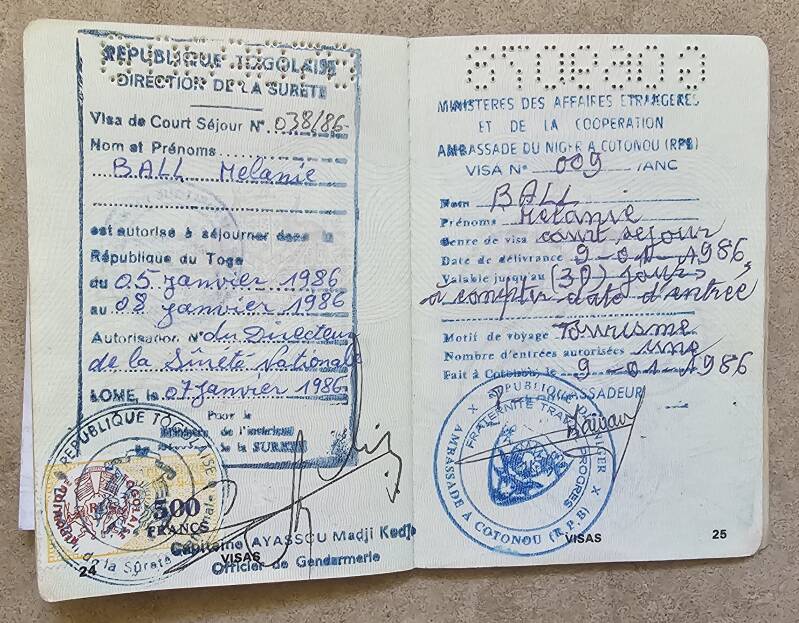 REPUBLIQUE TOGOLAISE
DIRECTION DE LA SURETE
Visa de Court Séjour N° 038/86
Nom et Prénoms
BALL Melanie
est autorisé à séjourner dans la
République du Togo
du 05 janvier 1986
au 08 janvier 1986
Autorisation N° du Directeur
de la Sûreté Nationale
LOME, le 07 janvier 1986
Pour le
Ministre de l'intérieur
de la SURETE
REPUBLIQUE TOGOLAISE
500
FRANCS
de la Sûreté
Capitaine AYASSOU Madji Kodjo
Officier de Gendarmerie
VISAS
24
MINISTERES DES AFFAIRES ETRANGERES
ET DE LA COOPERATION
AMBASSADE DU NIGER A COTONOU (RPB)
VISA N° 009 /ANC
Nom BALL
Prénoms Melanie
Genre de visa court séjour
Date de délivrance 9-01-1986
Valable jusqu'au (30) jours
à compter date d'entrée
Motif de voyage Tourisme
Nombre d'entrées autorisées une
Fait à Cotonou, le 9-01-1986
AMBASSADEUR
REPUBLIQUE DU NIGER
FRATERNITE TRAVAIL PROGRES
AMBASSADE A COTONOU (R.P.B)
VISAS
25